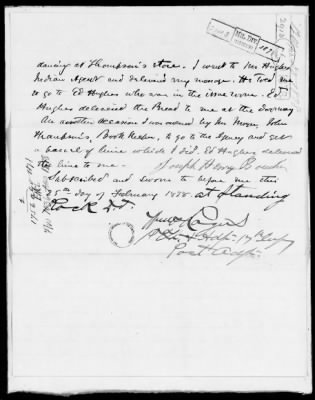 dancing at Thompson's store. I went to Mr Hughes
Indian Agent and delivered my message. He told me
to go to Ed Hughes who was in the issue room. Ed
Hughes delivered the Bread to me at the doorway
On another occasion I was ordered by Mr. John
Thompson's, Book Keeper, to go to the Agency and get
a barrel of lime which I did. Ed Hughes delivered
the lime to me –
Joseph Henry
Subscribed and sworn to before me this
25th day of February 1878. at Standing
Rock D.T.
1st Lt. & Adjt. 17th Infy
Post Adjt.